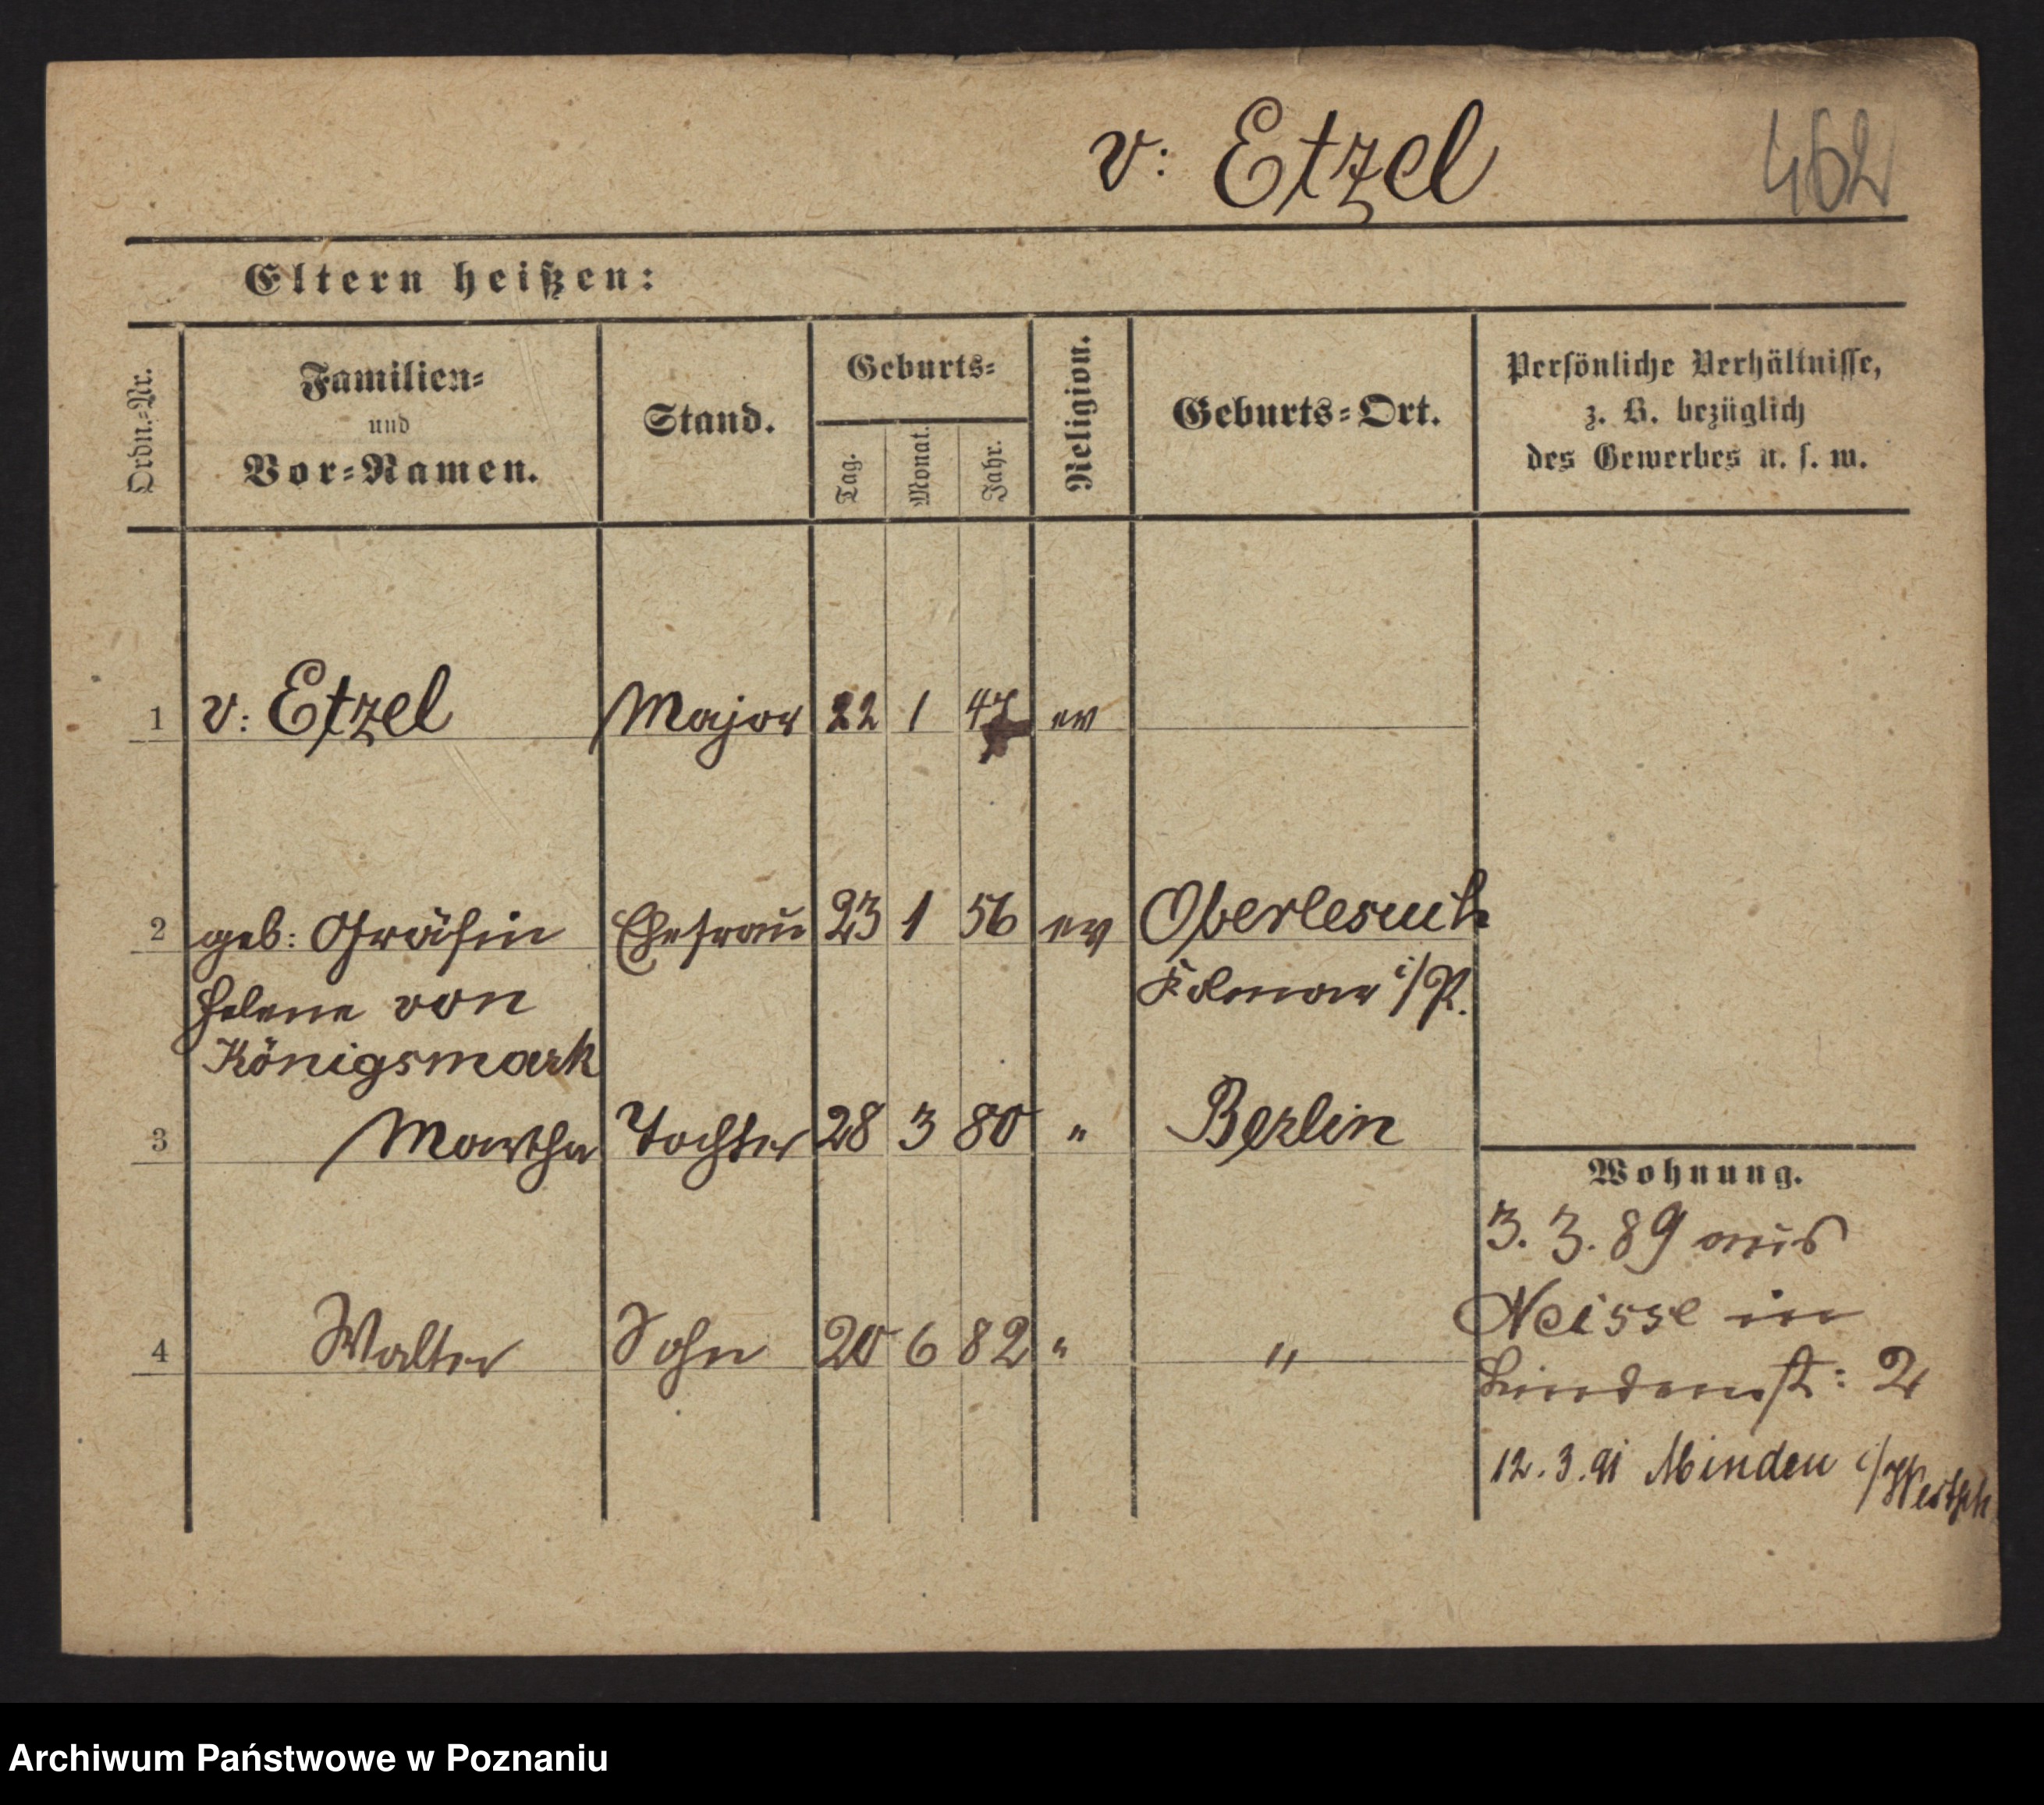 v: Etzel 462
Eltern heißen:
Ordn.-Nr.
Familien-
und
Vor-Namen.
Stand.
Geburts-
Tag.
Monat.
Jahr.
Religion.
Geburts-Ort.
Persönliche Verhältnisse,
z. B. bezüglich
des Gewerbes u. s. w.
1 v: Etzel Major 22 1 47 ev
2 geb: Gräfin Ehefrau 23 1 56 ev Oberlesnitz
Helene von Kolmar i/P.
Königsmark
3 Martha Tochter 28 3 80 " Berlin
4 Walter Sohn 20 6 82 " "
Wohnung.
3. 3. 89 aus
Neisse in
Lindenst: 2
12. 3. 91 Minden i/Westph
Archiwum Państwowe w Poznaniu